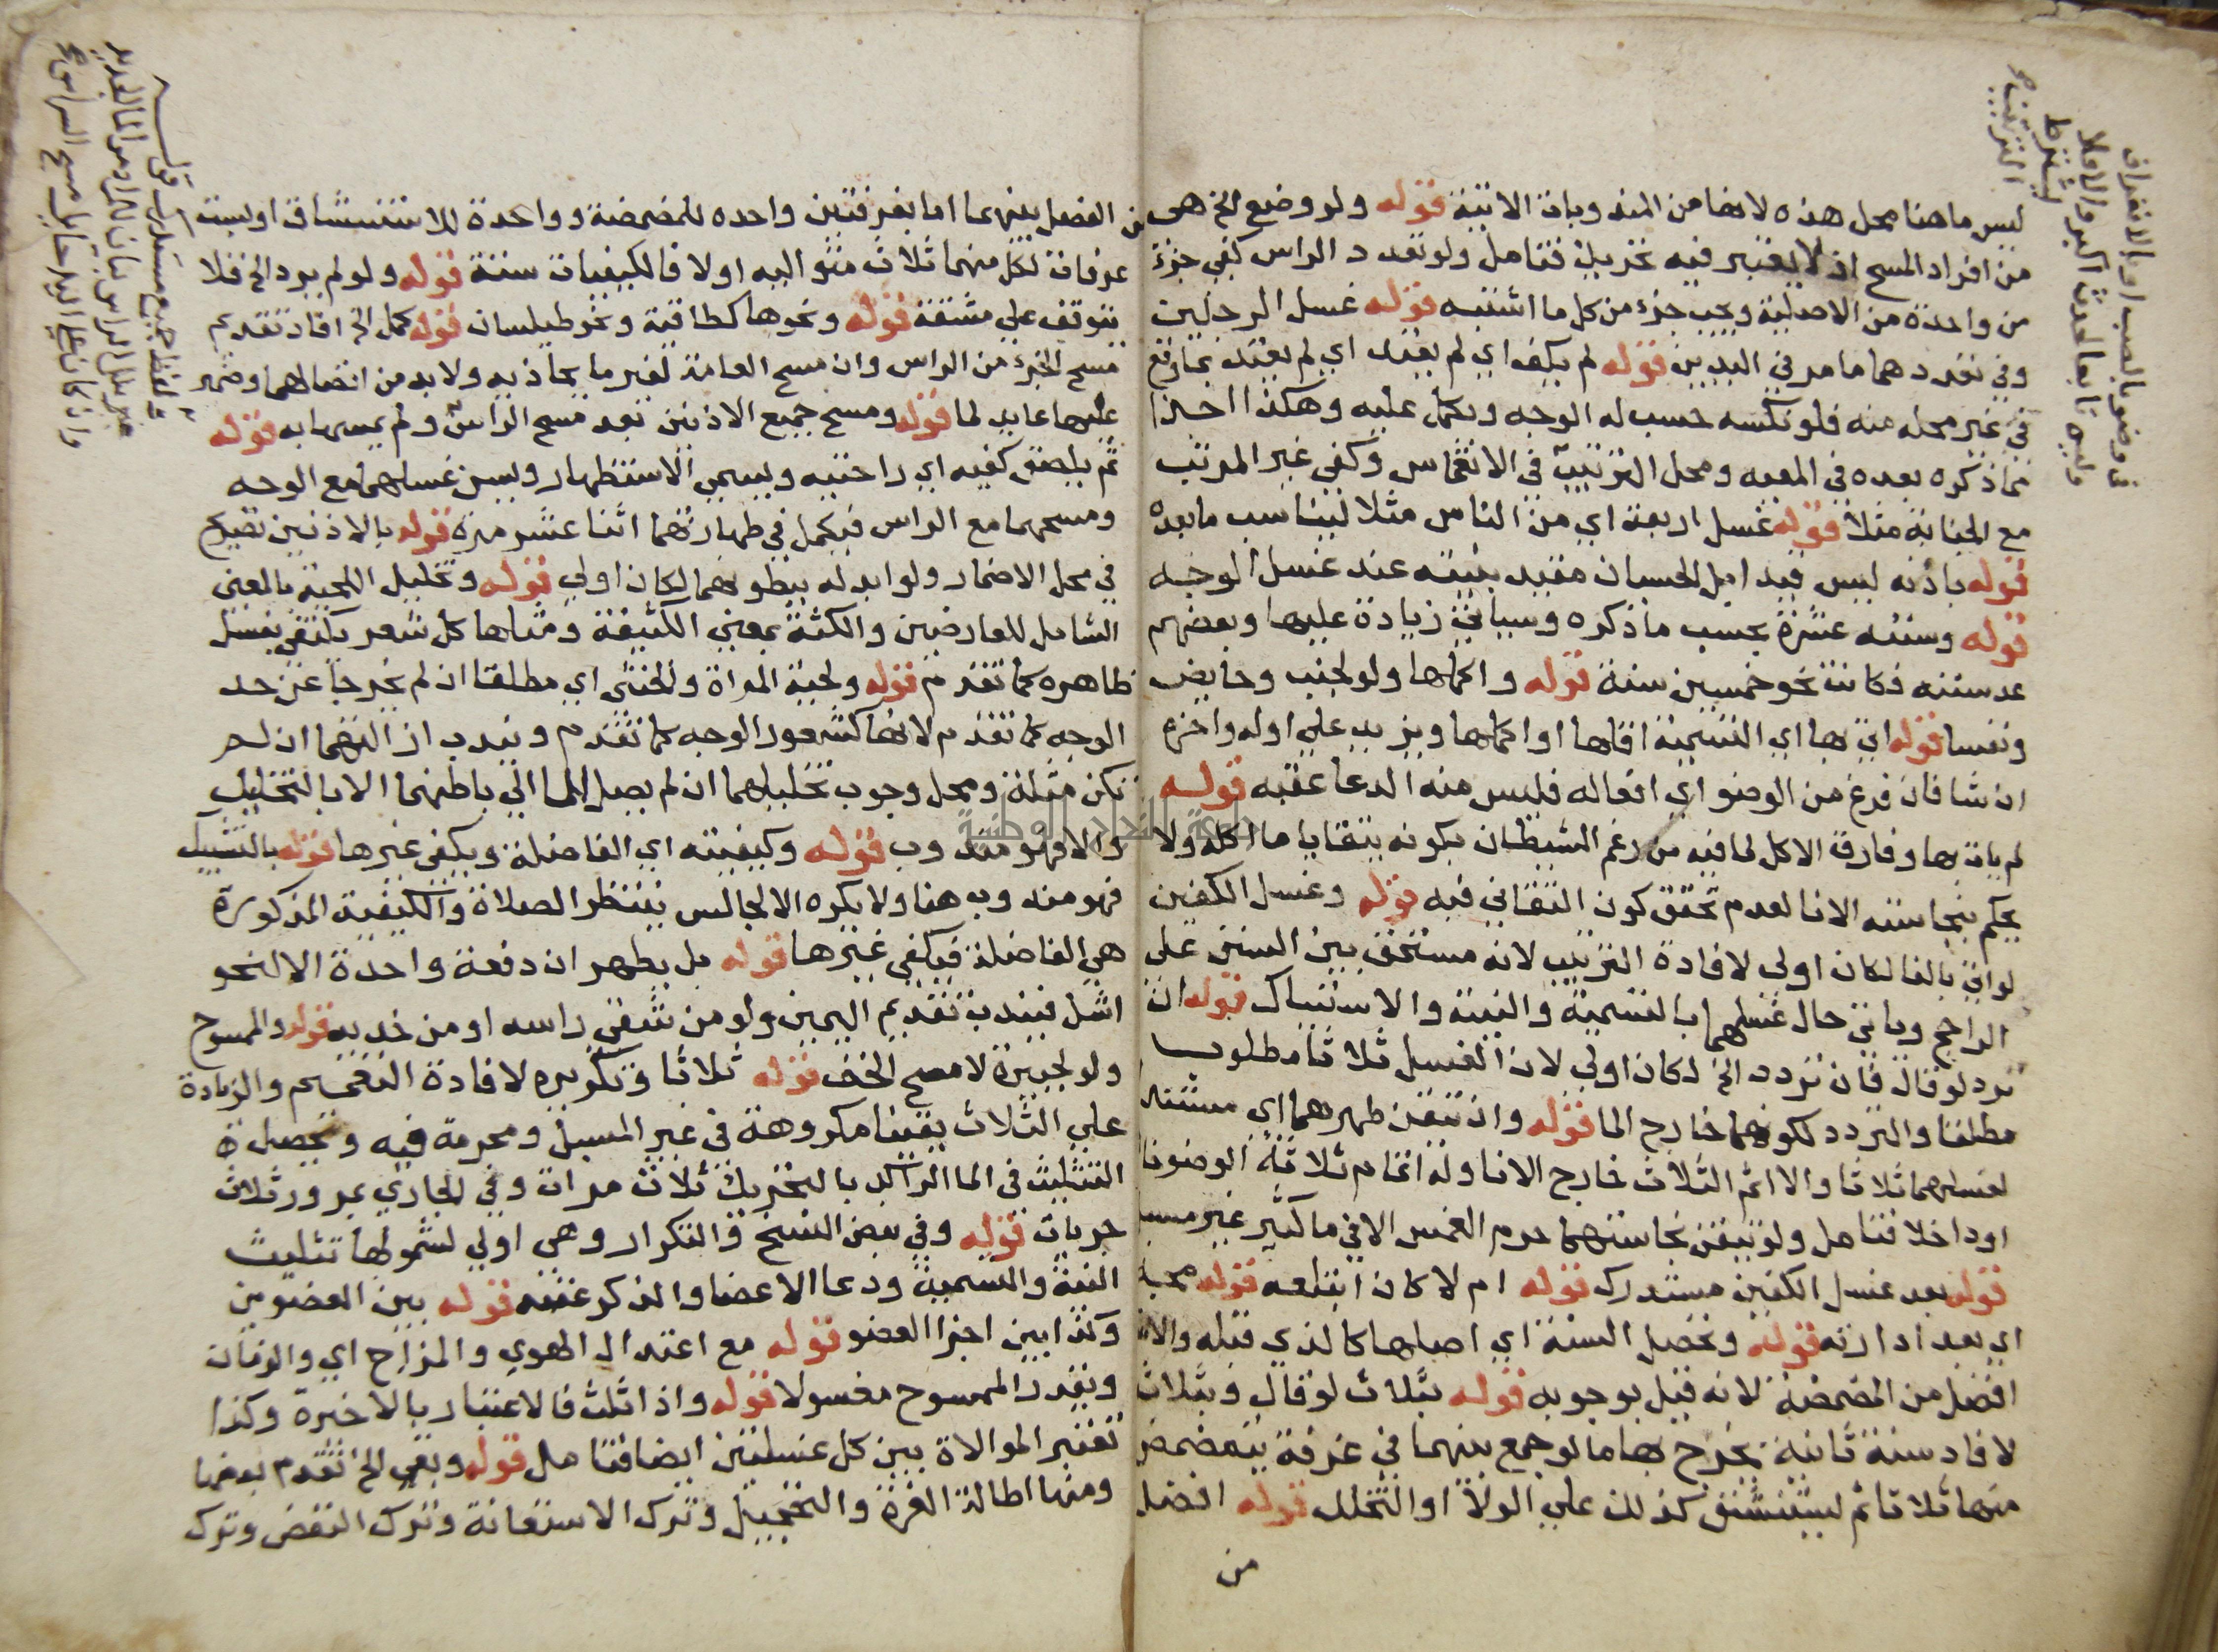 ليس ما هنا محل هذه لانها من المند وبات الاتية قوله ولو وضع الخ هى
من افراد المسح اذ لا يعتبر فيه تحريك فتامل ولو تعدد الراس كفى جزء
من واحدة من الاصلية ويجب جزء من كل ما اشتبه قوله غسل الرجلين
وفي تعددهما ما مر في اليدين قوله لم يكف اي لم يعتد اي لم يعتد بما وقع
في غير محله منه فلو نكسه حسب له الوجه ويكمل عليه وهكذا اخذا
مما ذكره بعده في المعيه ومحل الترتيب في الانغماس وكفى غير المرتب
مع الجنابة مثلا قوله غسل اربعة اي من الناس مثلا ليناسب ما بعده
قوله باذنه ليس قيدا بل الحسبان مقيد بنيته عند غسل الوجه
قوله وسننه عشرة بحسب ما ذكره وسياتي زيادة عليها وبعضهم
عد سننه فكانت نحو خمسين سنة قوله واكملها ولو لجنب وحايض
ونفسا قوله اتى بها اي التسمية اقلها او اكملها ويزيد على اوله واخره
ان شا فان فرغ من الوضو اي افعاله فليس منه الدعا عقبه قوله
لم يات بها وفارق الاكل لما فيه من رغم الشيطان بكونه يتقايا ما اكله ولا
يحكم بنجاسته الانا لعدم تحقق كون التقاي فيه قوله وغسل الكفين
لو اتى بالفا لكان اولى لافادة الترتيب لانه مستحق بين السنن على
الراجح وياتي حال غسلهما بالتسمية والنية والاستياك قوله ان
تردد لو قال فان تردد الخ لكان اولى لان الغسل ثلاثا مطلوب
مطلقا والتردد لكونهما خارج الما قوله وان تيقن طهرهما اي مستند
لغسلهما ثلاثا والا اتم الثلاث خارج الانا وله اتمام ثلاثة الوضوفا
او داخلا فتامل ولو تيقن نجاستهما حرم الغمس الا في ما كثير غير مسبل
قوله بعد غسل الكفين مستدرك قوله ام لا كان ابتلعه قوله مجه
اي بعد ادارته قوله وتحصل السنة اي اصلها كالذي قبله والا
افضل من المضمضة لانه قيل بوجوبه قوله بثلاث لو قال وبثلاث
لافاد سنة ثانية يخرج بها ما لو جمع بينهما في غرفة يتمضمض
منها ثلاثا ثم ليستنشق كذلك على الولا او التخلل قوله افضل
من
ف وضو بالصب او بالاغتراف
وليه تابعا لحدث اكبر والا فلا
يشترط
الترتيب
من الفصل بينهما اما بغرفتين واحده للمضمضة وواحدة للاستنشاق او بست
غرفات لكل منهما ثلاث متواليه اولا فالكيفيات ستة قوله ولو لم يرد الخ فلا
يتوقف علي مشقة قوله ونحوها كطاقية ونحو طيلسان قوله كمل الخ افاد تقديم
مسح الجزء من الراس وان مسح العمامة لغير ما يحاذيه ولا بد من اتصالهما وضمير
عليها عايد لما قوله ومسح جميع الاذنين بعد مسح الراس ولم يمسها به قوله
ثم يلصق كفيه اي راحتيه ويسمى الاستظهار ويسن غسلهما مع الوجه
ومسحهما مع الراس فيكمل في طهارتهما اثنا عشر مرة قوله بالاذنين
في محل الاضمار ولو ابدله ببطونهما لكان اولى قوله وتخليل اللحية بالمعنى
الشامل للعارضين والكثة بمعنى الكثيفة ومثلها كل شعر يكتفى بغسل
ظاهره كما تقدم قوله ولحية المراة والخنثى اي مطلقا ان لم يخرجا عن حد
الوجه كما تقدم لانها كشعور الوجه كما تقدم ويندب ازالتهما ان لم
تكن مثلة ومحل وجوب تخليلهما ان لم يصل الما الي باطنهما الا بالتخليل
والا فهو مندوب قوله وكيفيته اي الفاضلة ويكفى غيرها قوله بالتشبيك
فهو مندوب هنا ولا يكره الا لجالس ينتظر الصلاة والكيفية المذكورة
هي الفاضلة فيكفي غيرها قوله بل يطهران دفعة واحدة الا لنحو
اشل فيندب تقديم اليمين ولو من شقي راسه او من خديه قوله والممسوح
ولو لجبيرة لا مسح الخف قوله ثلاثا وتكريره لافادة التعميم والزيادة
علي الثلاث يقينا مكروهة في غير المسبل ومحرمة فيه وتحصل
التثليث في الما الراكد بالتحريك ثلاث مرات وفي الجاري بمرور ثلاث
جريات قوله وفي بعض النسخ والتكرار وهى اولي لشمولها تثليث
النية والتسمية ودعا الاعضا والذكر عقبه قوله بين العضوين
وكذا بين اجزا العضو قوله مع اعتدال الهوي والمزاج اي والزمان
ويقدر الممسوح مغسولا قوله واذا ثلث فالاعتبار بالاخيرة وكذا
تعتبر الموالاة بين كل غسلتين ايضا فتامل قوله وبقى الخ تقدم بعضها
ومنها اطالة الغرة والتحجيل وترك الاستعانة وترك النفض وترك
قوله
لفظ جميع مستدرك